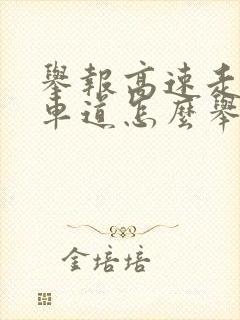 舉報高速走
車道怎麼舉
金培培